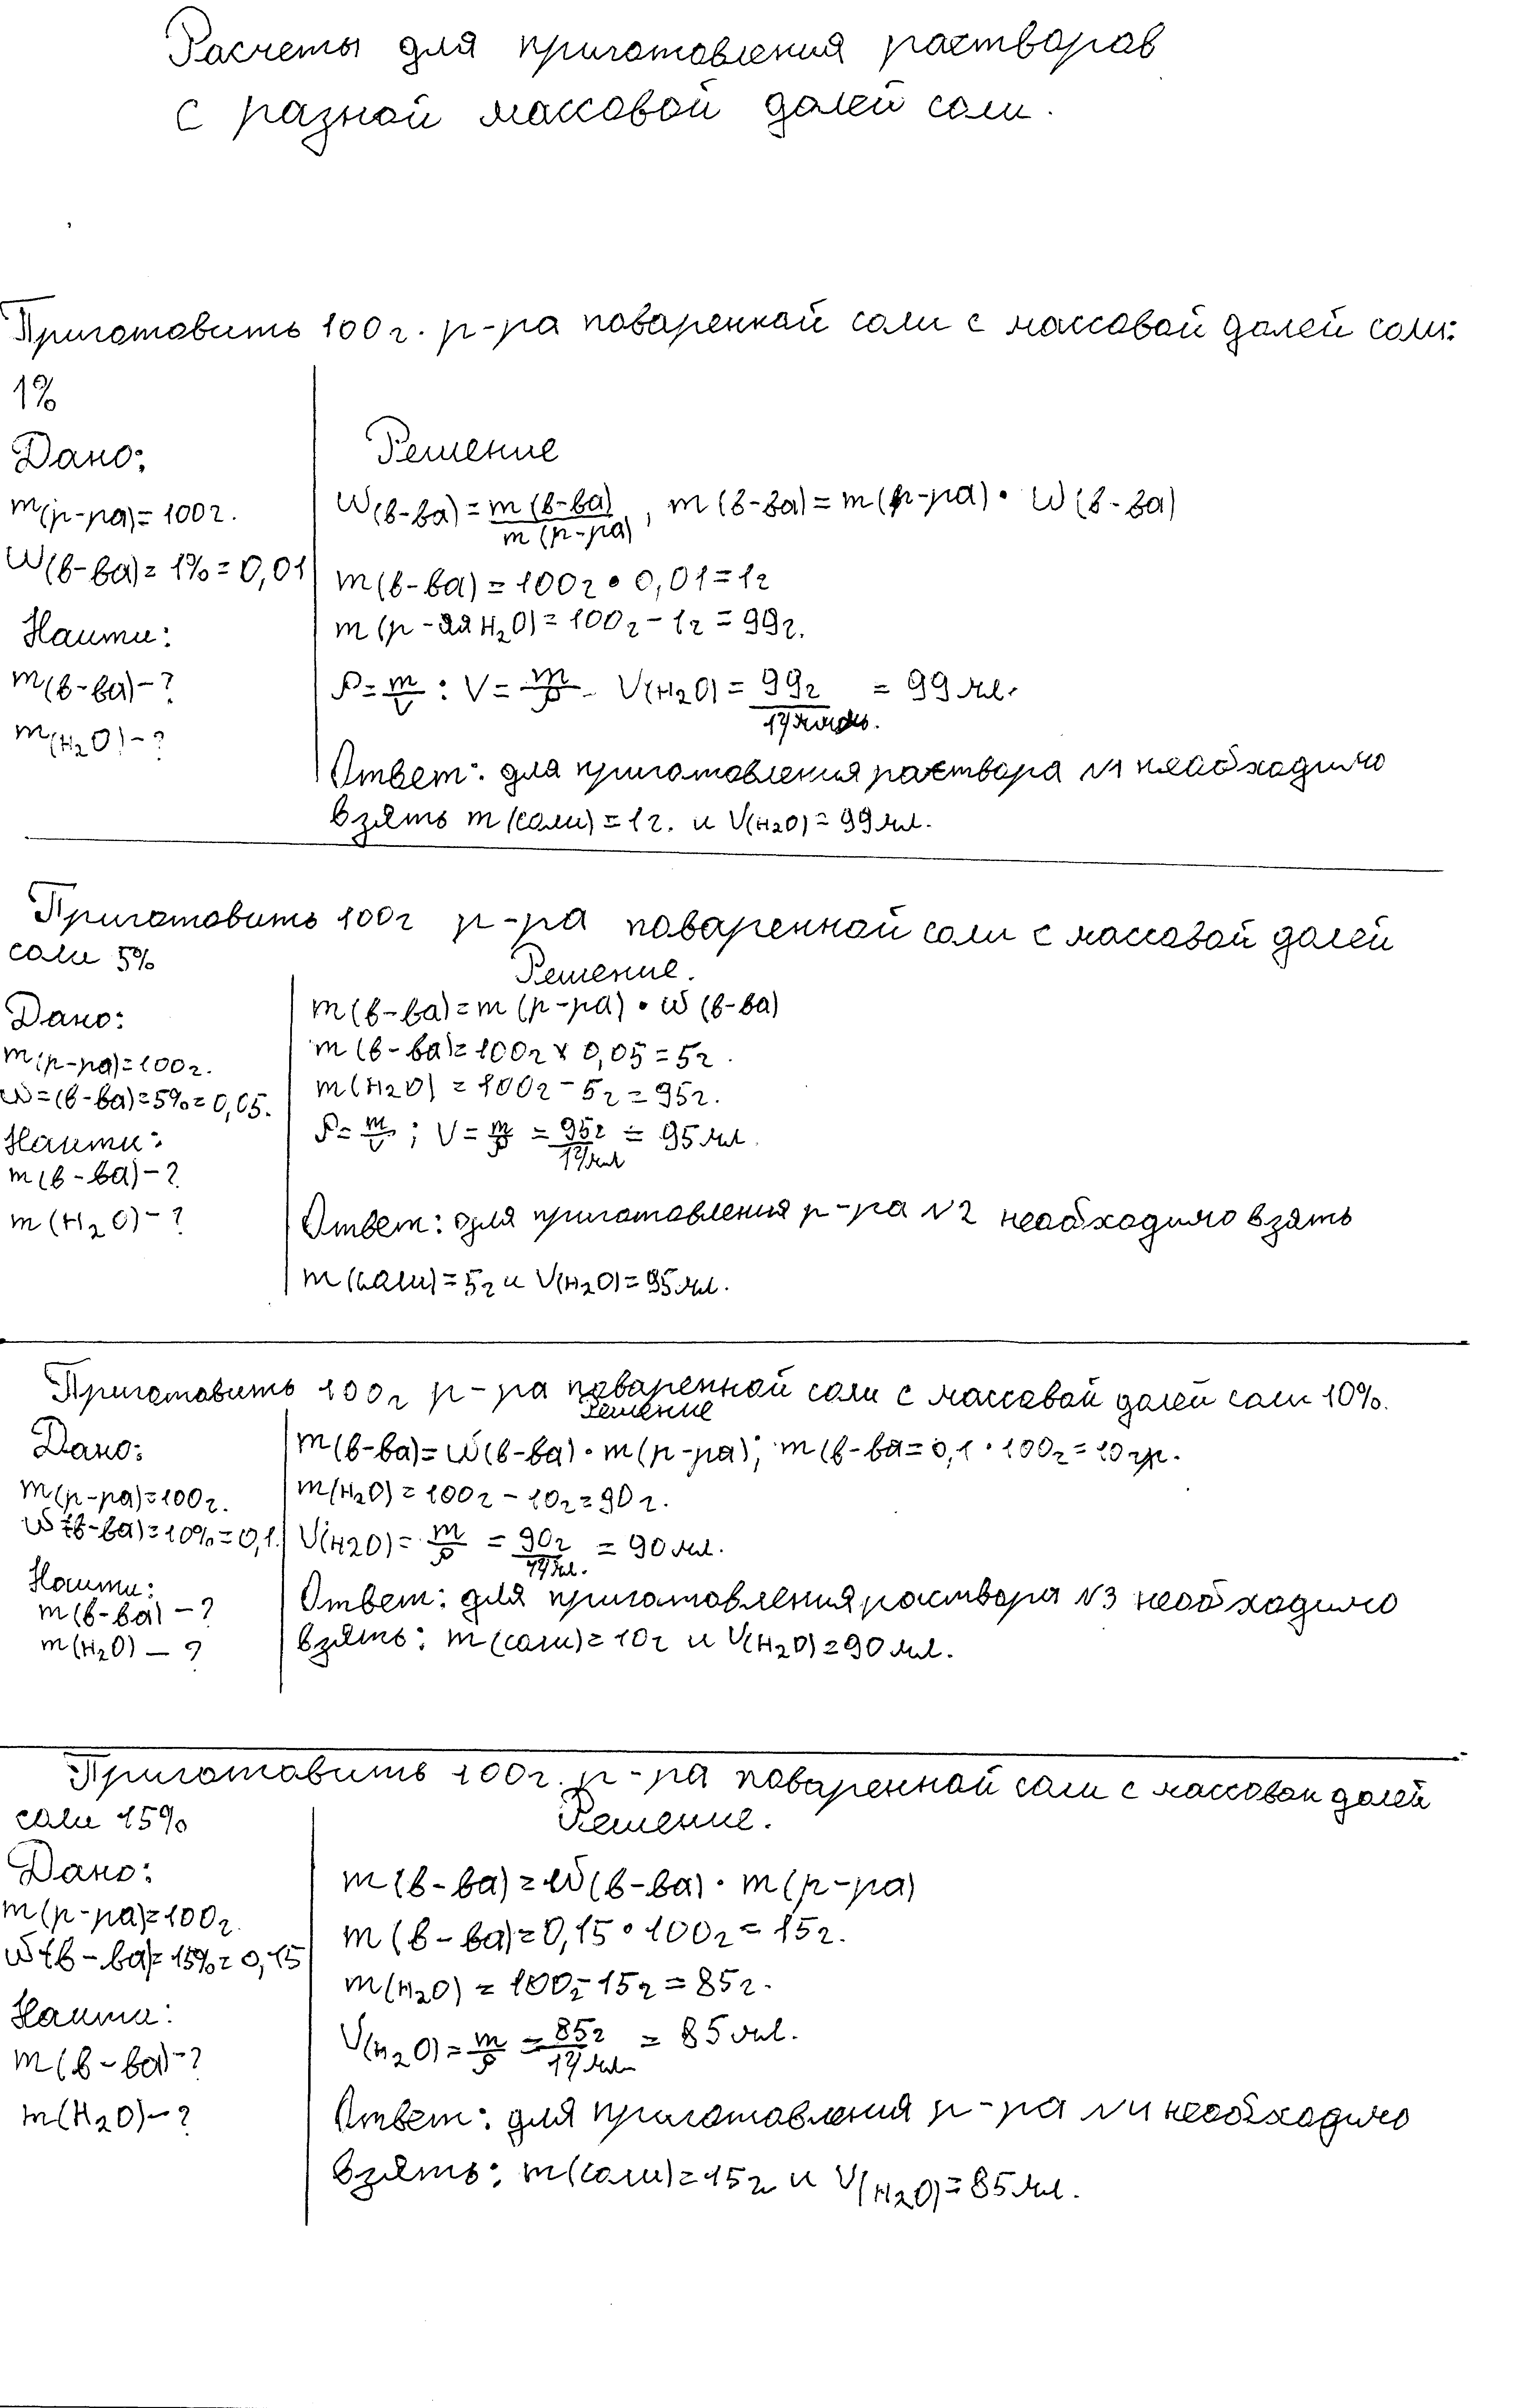 Расчеты для приготовления растворов
с разной массовой долей соли.
Приготовить 100г. р-ра поваренной соли с массовой долей соли:
1%
Дано:
m(р-ра)=100г.
W(в-ва)=1%=0,01
Наити:
m(в-ва)-?
m(H₂O)-?
Решение
W(в-ва)=m(в-ва)/m(р-ра), m(в-ва)=m(р-ра)·W(в-ва)
m(в-ва)=100г·0,01=1г
m(р-ля H₂O)=100г-1г=99г.
ρ=m/V : V=m/ρ - V(H₂O)=99г/1г/мл. = 99 мл.
Ответ: для приготовления раствора №1 необходимо
взять m(соли)=1г. и V(H₂O)=99 мл.
Приготовить 100г р-ра поваренной соли с массовой долей
соли 5%
Дано:
m(р-ра)=100г.
W=(в-ва)=5%=0,05.
Наити:
m(в-ва)-?
m(H₂O)-?
Решение.
m(в-ва)=m(р-ра)·W(в-ва)
m(в-ва)=100г×0,05=5г.
m(H₂O)=100г-5г=95г.
ρ=m/V ; V=m/ρ=95г/1г/мл=95 мл.
Ответ: для приготовления р-ра №2 необходимо взять
m(соли)=5г и V(H₂O)=95мл.
Приготовить 100г р-ра поваренной соли с массовой долей соли 10%.
Дано:
m(р-ра)=100г.
W(в-ва)=10%=0,1.
Наити:
m(в-ва)-?
m(H₂O)-?
Решение
m(в-ва)=W(в-ва)·m(р-ра); m(в-ва=0,1·100г=10гр.
m(H₂O)=100г-10г=90г.
V(H₂O)=m/ρ=90г/1г/мл.=90мл.
Ответ: для приготовления раствора №3 необходимо
взять: m(соли)=10г и V(H₂O)=90мл.
Приготовить 100г. р-ра поваренной соли с массовой долей
соли 15%
Дано:
m(р-ра)=100г.
W(в-ва)=15%=0,15
Наити:
m(в-ва)-?
m(H₂O)-?
Решение.
m(в-ва)=W(в-ва)·m(р-ра)
m(в-ва)=0,15·100г=15г.
m(H₂O)=100г-15г=85г.
V(H₂O)=m/ρ=85г/1г/мл=85мл.
Ответ: для приготовления р-ра №4 необходимо
взять: m(соли)=15г и V(H₂O)=85мл.